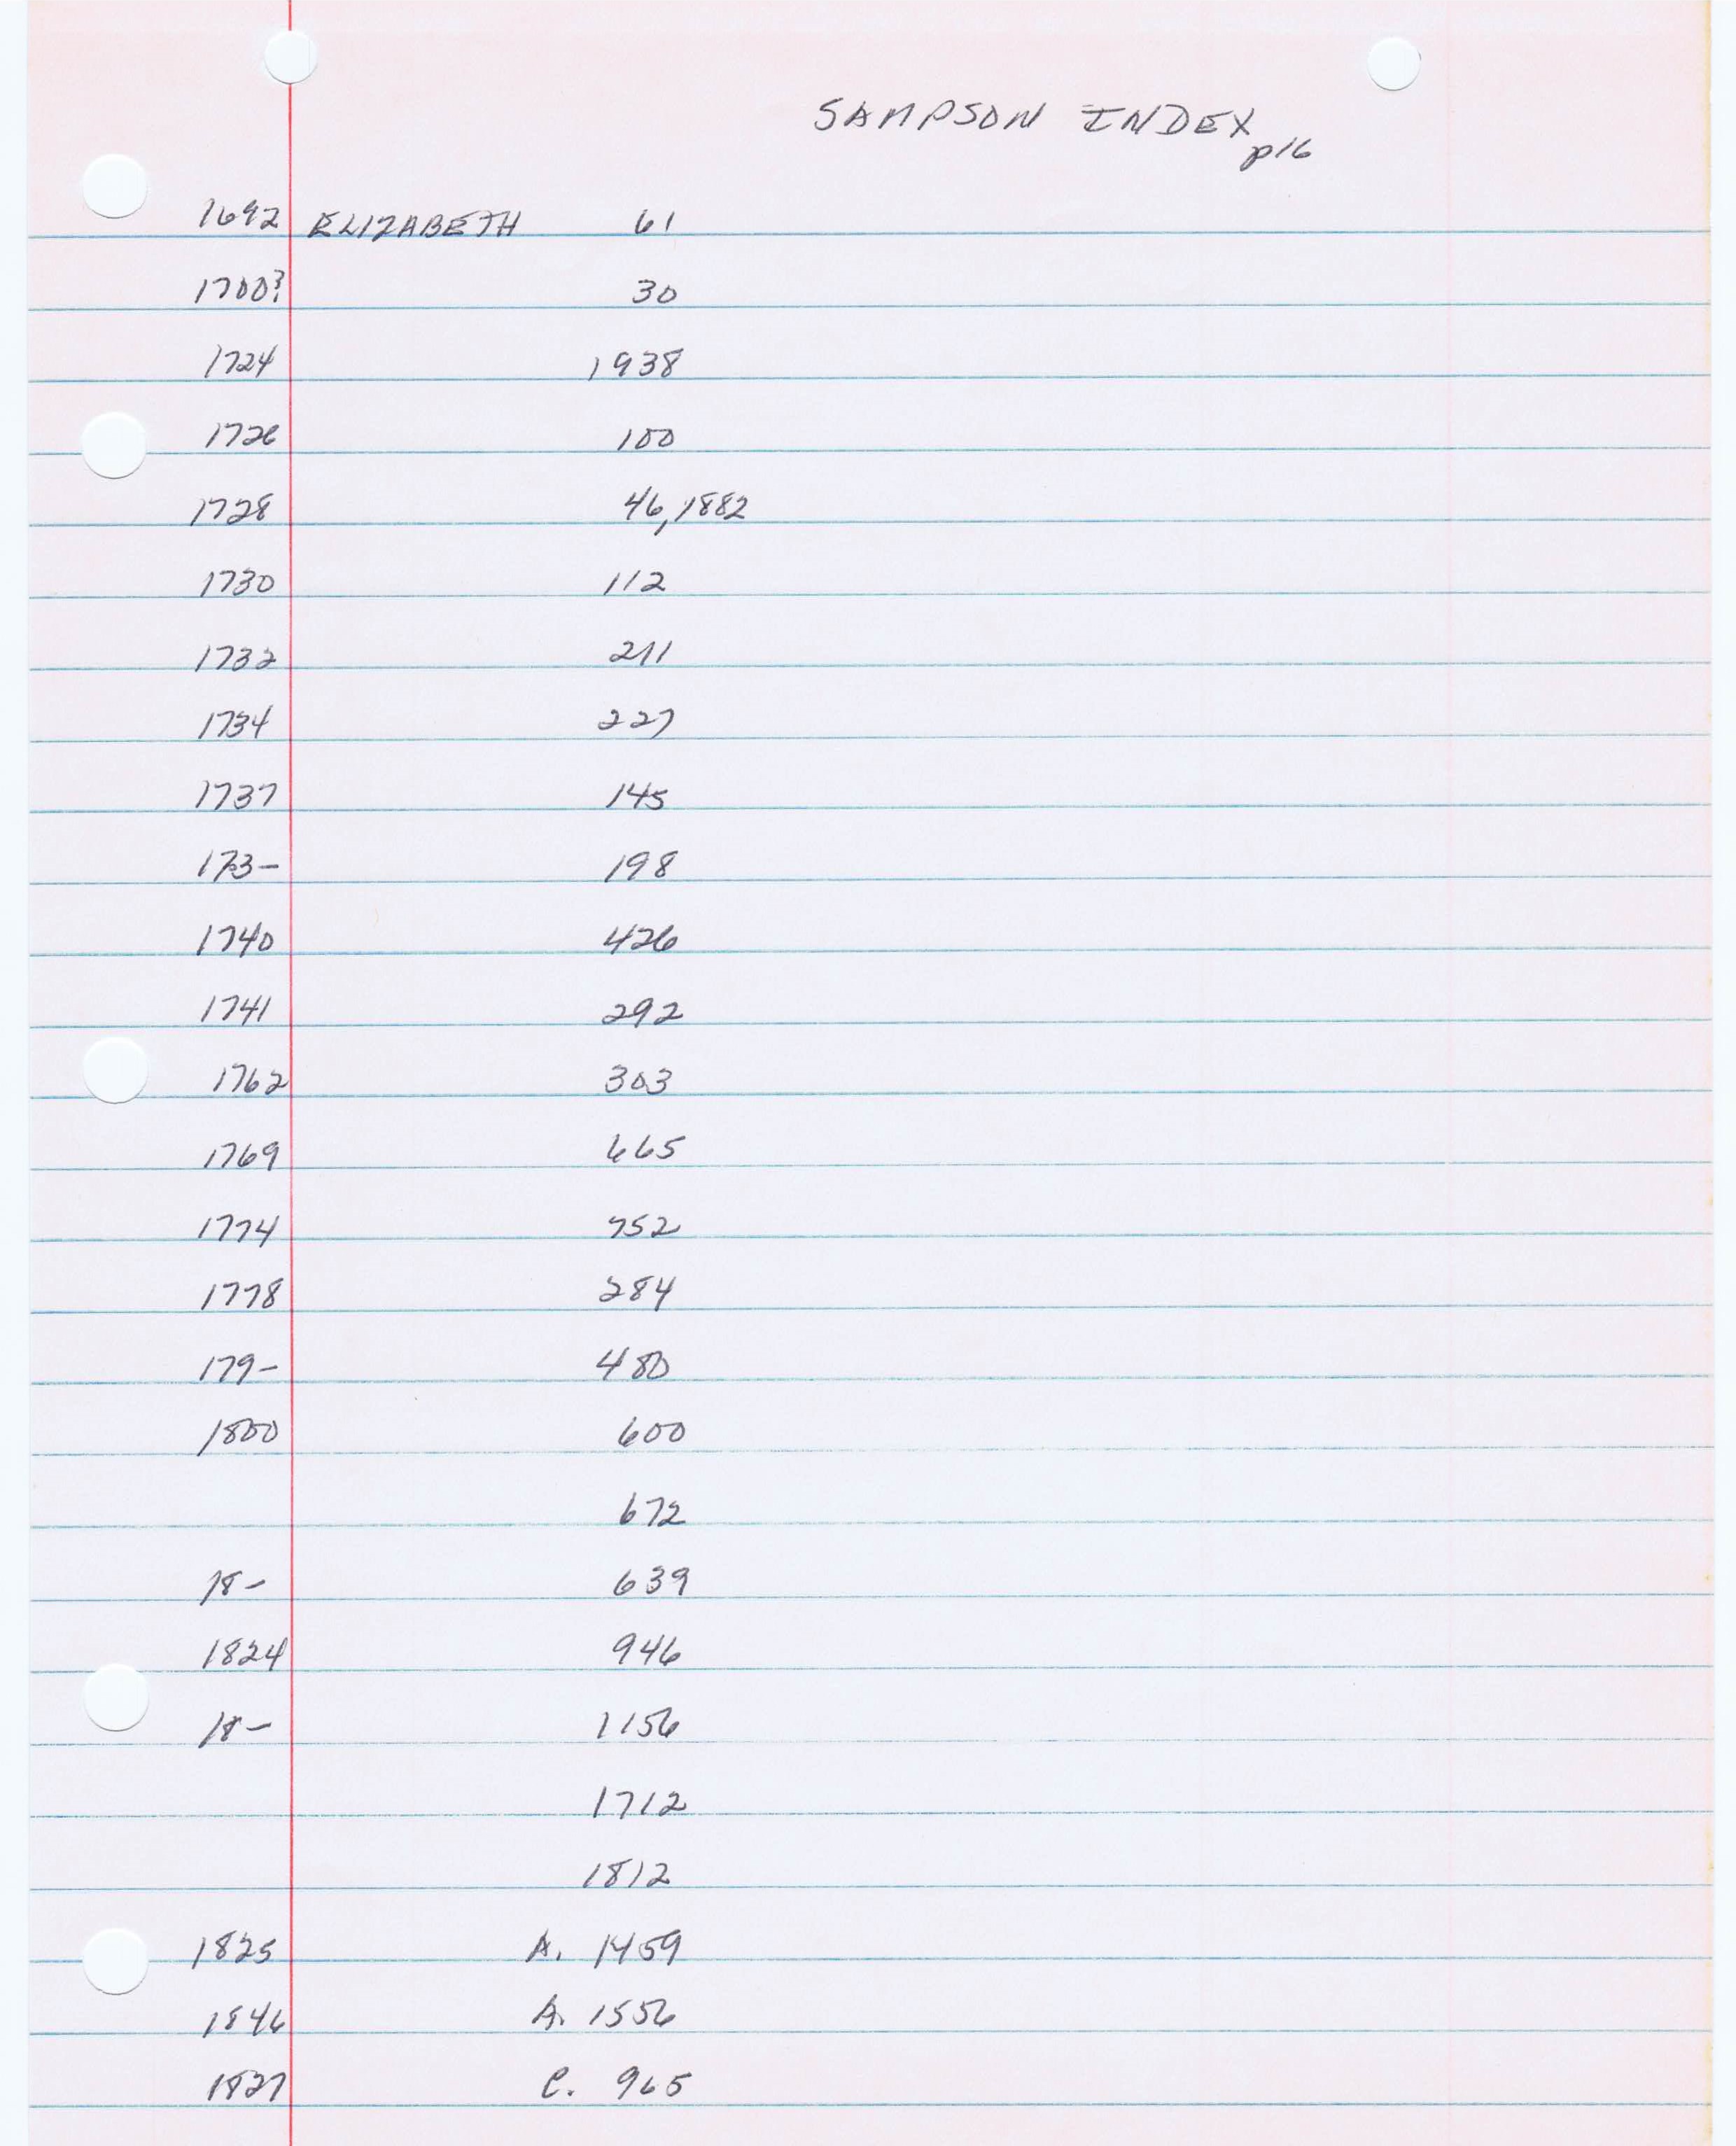 SAMPSON INDEX
p16
1692 ELIZABETH 61
1700? 30
1724 1938
1726 100
1728 46,1882
1730 112
1732 211
1734 227
1737 145
173- 198
1740 426
1741 292
1762 303
1769 665
1774 752
1778 284
179- 480
1800 600
672
18- 639
1824 946
18- 1156
1712
1812
1825 A. 1459
1846 A. 1556
1827 C. 965